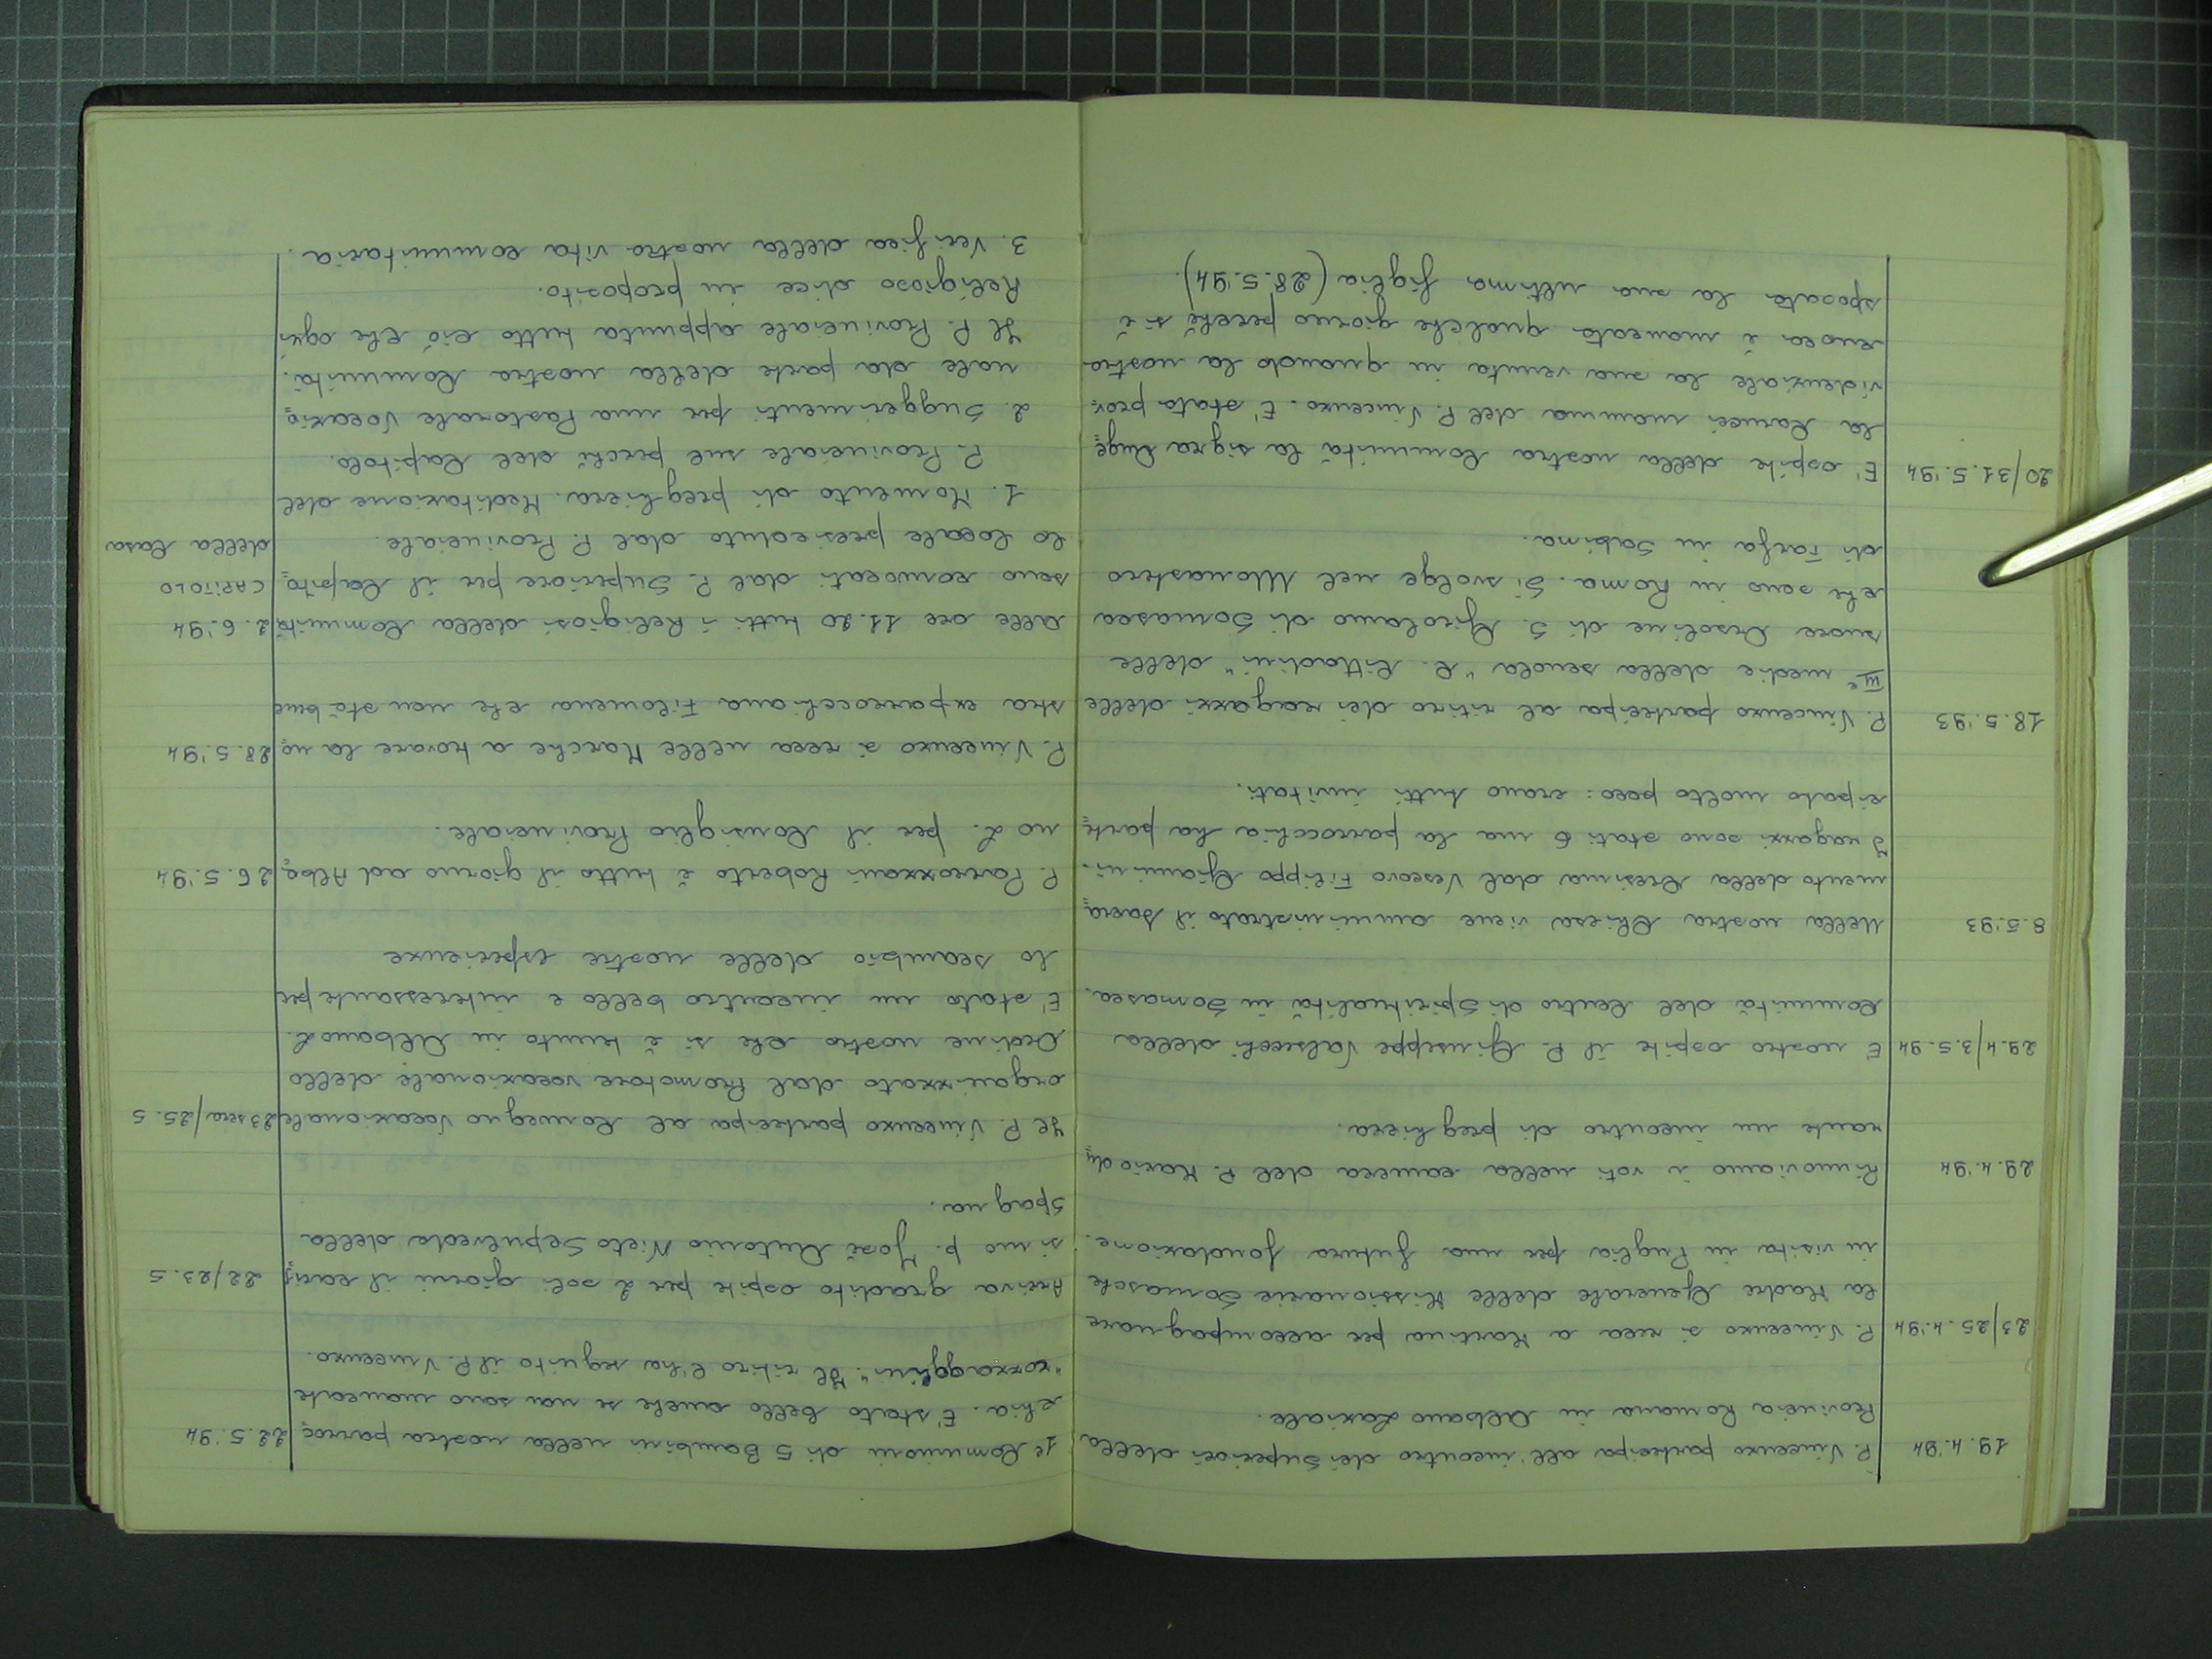 19.4.'94 P. Vincenzo partecipa all'incontro dei Superiori della
Provincia Romana in Albano Laziale.
23/25.4.'94 P. Vincenzo si reca a Martina per accompagnare
la Madre Generale delle Missionarie Somasche
in visita in Puglia per una futura fondazione.
29.4.'94 Rinnoviamo i voti nella camera del P. Mario du
rante un incontro di preghiera.
29.4/3.5.94 E' nostro ospite il P. Giuseppe Valsecchi della
Comunità del Centro di Spiritualità in Somasca.
8.5.'93 Nella nostra Chiesa viene amministrato il sacra
mento della Cresima dal Vescovo Filippo Giannini.
I ragazzi sono stati 6 ma la parrocchia ha parte
cipato molto poco: erano tutti invitati.
18.5.'93 P. Vincenzo partecipa al ritiro dei ragazzi delle
IIIe medie della scuola "R. Cittadini" delle
suore Orsoline di S. Girolamo di Somasca
che sono in Roma. Si svolge nel Monastero
di Farfa in Sabina.
20/31.5.'94 E' ospite della nostra Comunità la sig.ra Luge
la Carucci mamma del P. Vincenzo. E' stata prov
videnziale la sua venuta in quando la nostra
cuoca è mancata qualche giorno perchè si è
sposata la sua ultima figlia (28.5.'94).
1e Comunioni di 5 Bambini nella nostra parroc 22.5.'94
chia. E' stato bello anche se non sono mancate
"rozzaggini". Il ritiro l'ha seguito il P. Vincenzo.
Arriva gradito ospite per 2 soli giorni il caris 22/23.5
simo p. José Antonio Nieto Sepulveda della
Spagna.
Il P. Vincenzo partecipa al Convegno Vocazionale 23 sera/25.5
organizzato dal Promotore vocazionale dello
Ordine nostro che si è tenuto in Albano L.
E' stato un incontro bello e interessante per
lo scambio delle nostre esperienze
P. Parrozzani Roberto è tutto il giorno ad Alba 26.5.'94
no L. per il Consiglio Provinciale.
P. Vincenzo si reca nelle Marche a trovare la no 28.5.'94
stra exparrocchiana Filomena che non stà bene
Alle ore 11.20 tutti i Religiosi della Comunità 2.6.'94
sono convocati dal P. Superiore per il Capito CAPITOLO
lo locale presieduto dal P. Provinciale. della Casa
1. Momento di preghiera. Meditazione del
P. Provinciale sul perchè del Capitolo.
2. Suggerimenti per una Pastorale Vocazio
nale da parte della nostra Comunità.
Il P. Provinciale appunta tutto ciò che ogni
Religioso dice in proposito.
3. Verifica della nostra vita comunitaria.